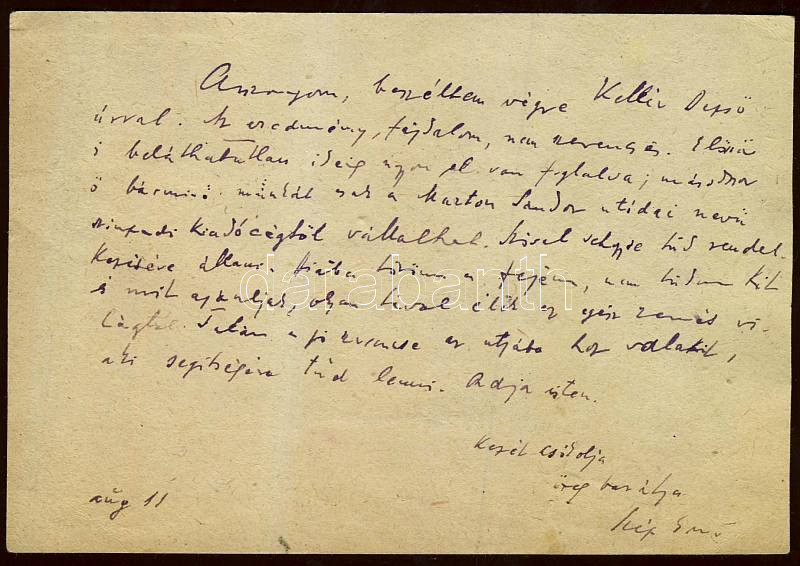 Asszonyom, beszéltem végre Kellér Dezső
úrral. Az eredmény, fájdalom, nem szerencsés. Először
is beláthatatlan ideig nyom el van foglalva; másodszor
ő bárminő munkát csak a Marton Sandor utódai nevű
szinpadi kiadócégtől vállalhat. Kivel sehogyse tud rendel-
kezésére állani. Hiába töröm a fejem, nem tudom kit
s mit ajánljak, olyan távol élek az egész zenés vi-
lágtól. Talán a jó szerencse az utjába hoz valakit,
aki segitségére tud lenni. Adja isten.
Kezét csókolja
öreg barátja
Szép Ernő
aug 11
darabanth